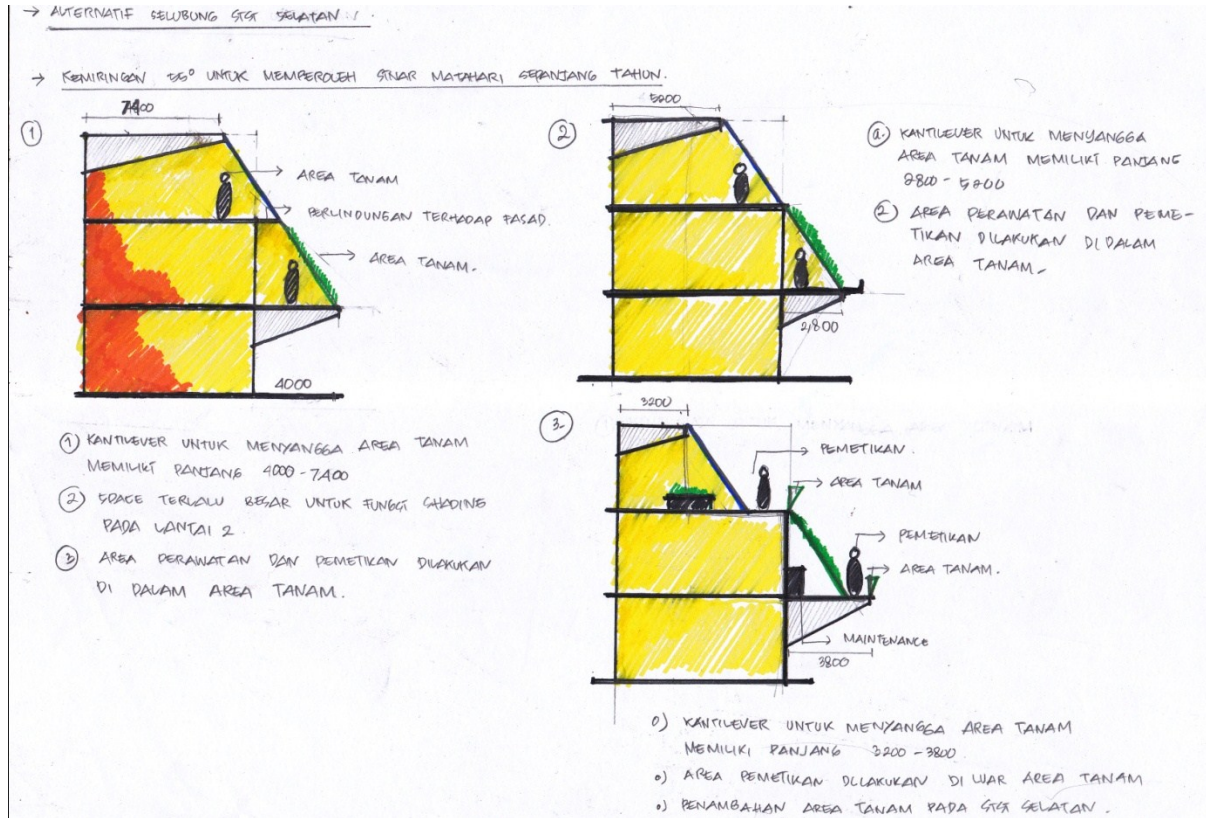 → ALTERNATIF SELUBUNG SISI SELATAN :
→ KEMIRINGAN 55° UNTUK MEMPEROLEH SINAR MATAHARI SEPANJANG TAHUN.
1
7400
AREA TANAM
PERLINDUNGAN TERHADAP FASAD.
AREA TANAM.
4000
① KANTILEVER UNTUK MENYANGGA AREA TANAM
MEMILIKI PANJANG 4000 - 7400
② SPACE TERLALU BESAR UNTUK FUNGSI SHADING
PADA LANTAI 2.
③ AREA PERAWATAN DAN PEMETIKAN DILAKUKAN
DI DALAM AREA TANAM.
2
5200
2,800
a. KANTILEVER UNTUK MENYANGGA
AREA TANAM MEMILIKI PANJANG
2800 - 5200
② AREA PERAWATAN DAN PEME-
TIKAN DILAKUKAN DI DALAM
AREA TANAM.
3.
3200
PEMETIKAN.
AREA TANAM
PEMETIKAN
AREA TANAM.
MAINTENANCE
3800
o) KANTILEVER UNTUK MENYANGGA AREA TANAM
MEMILIKI PANJANG 3200 - 3800
o) AREA PEMETIKAN DILAKUKAN DI LUAR AREA TANAM
o) PENAMBAHAN AREA TANAM PADA SISI SELATAN.